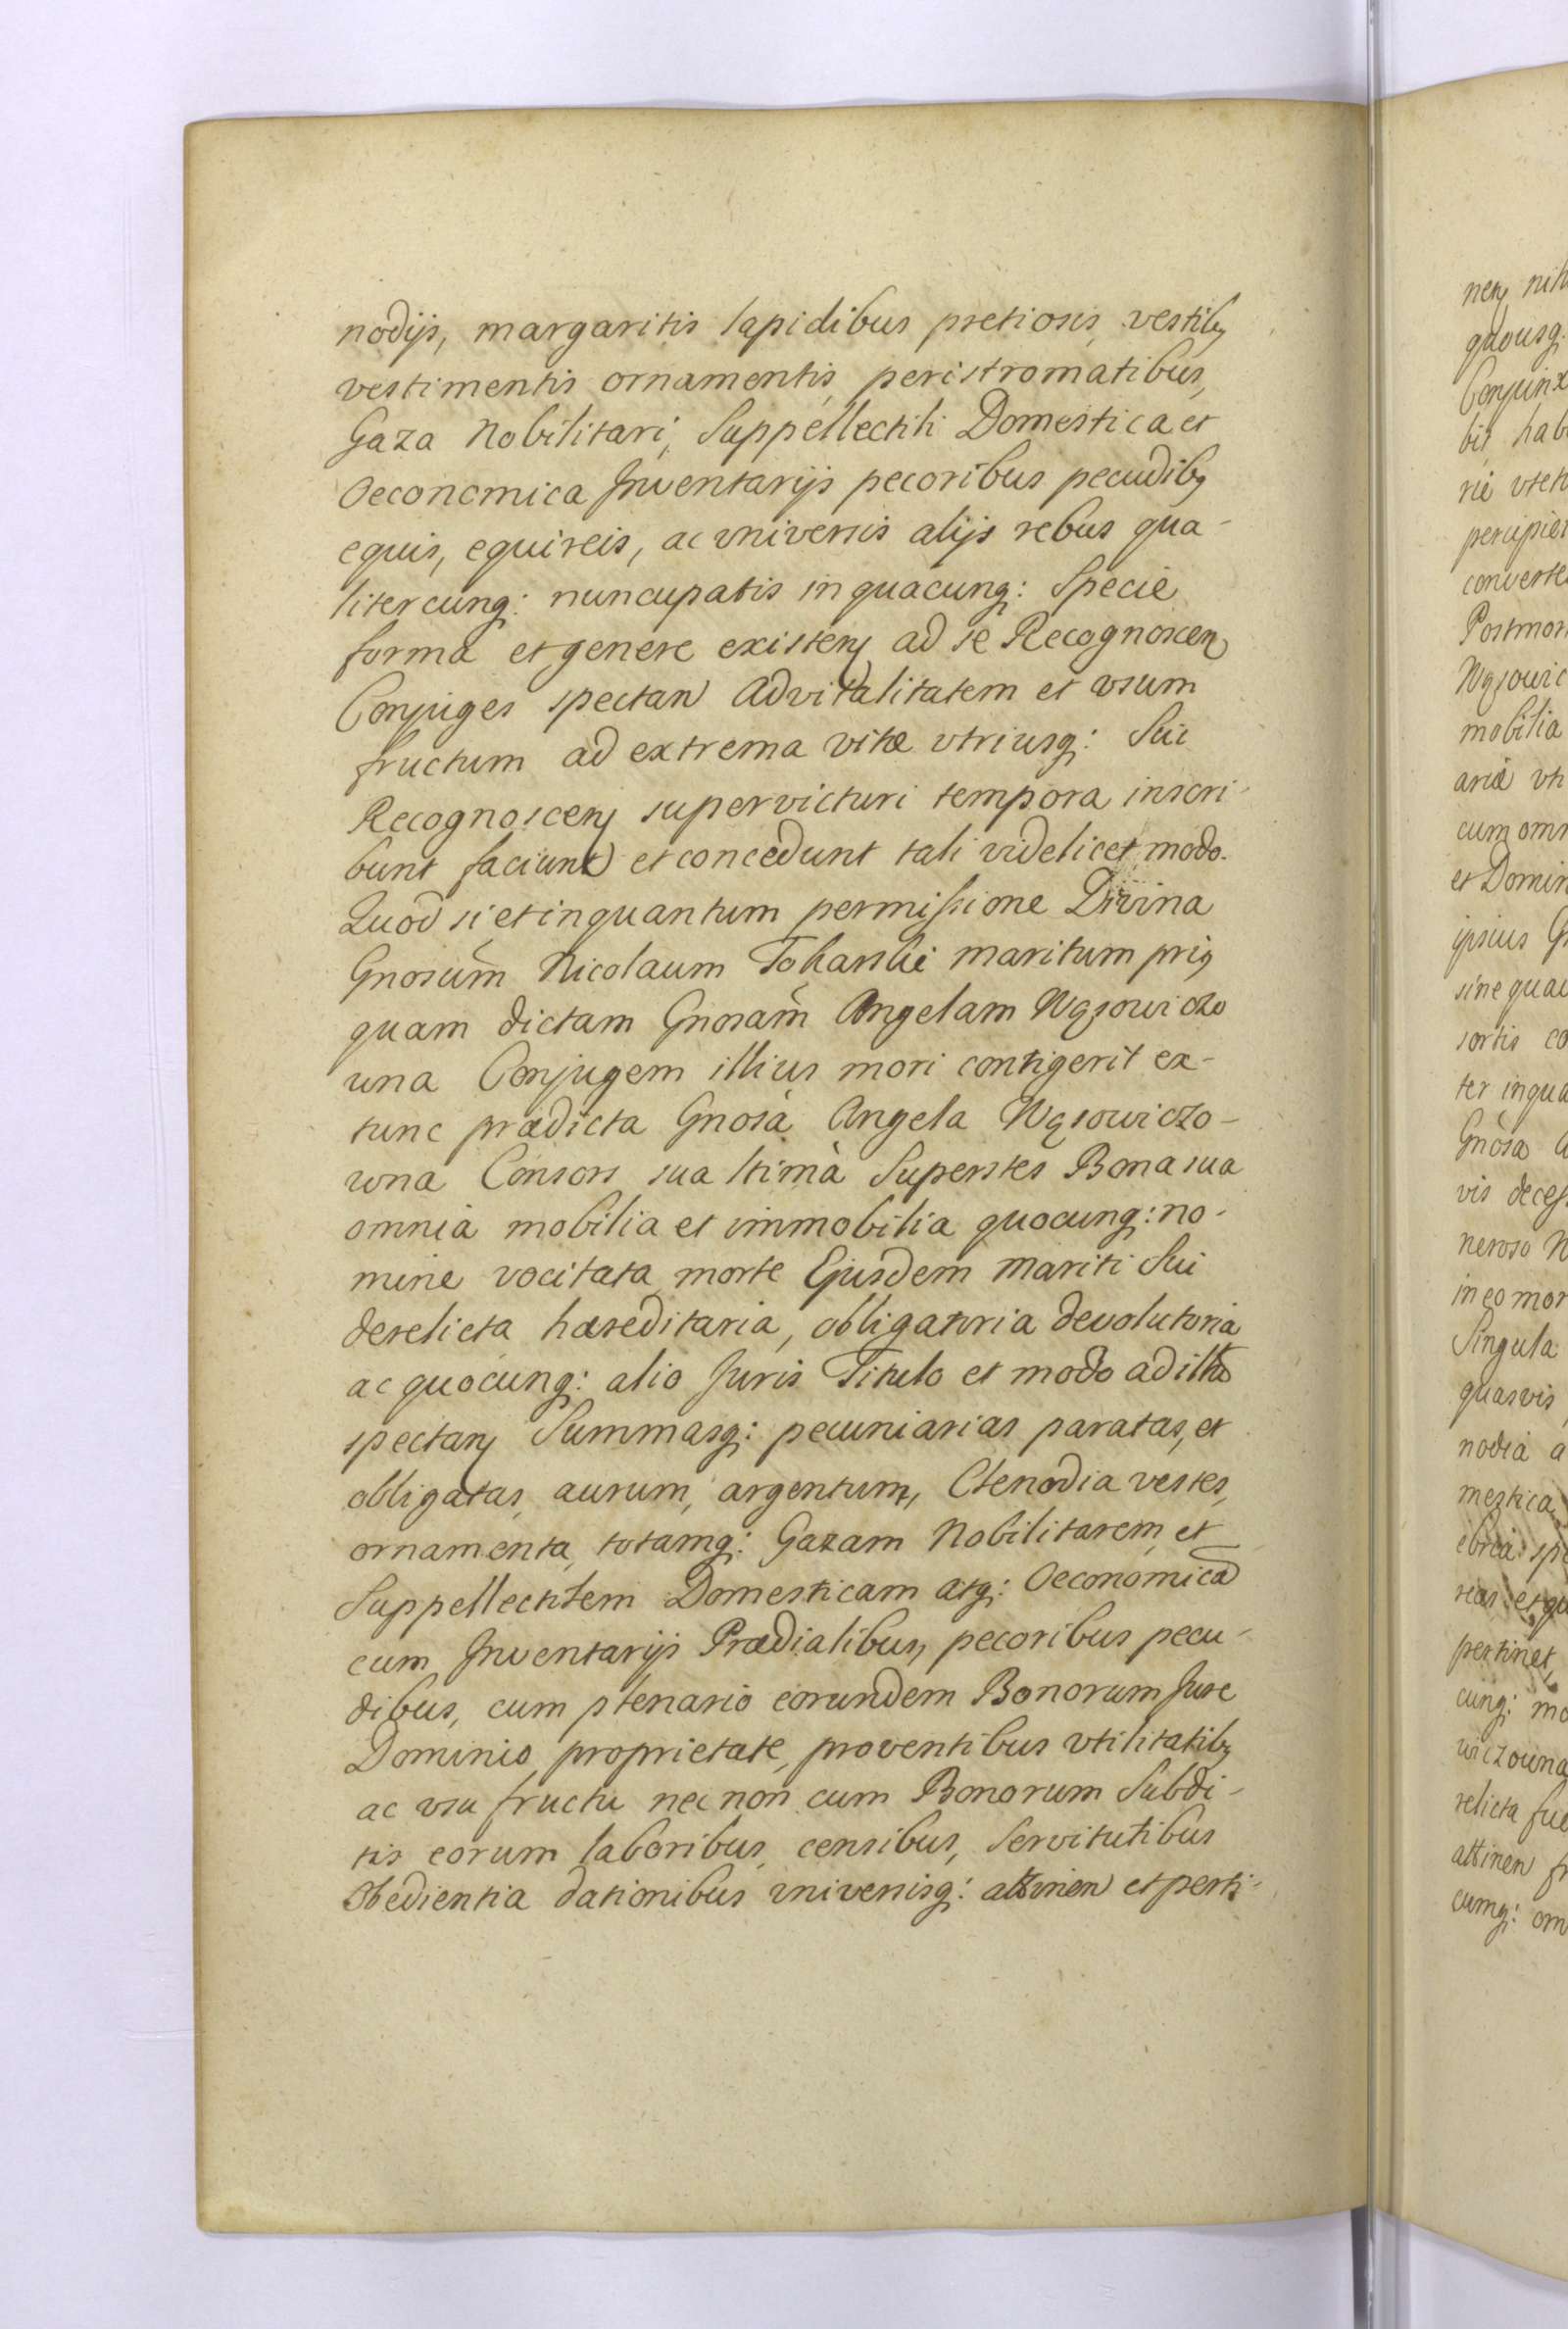 nodijs, margaritis lapidibus pretiosis, vestibꝫ
vestimentis ornamentis, peristromatibus,
Gaza Nobilitari, Suppellectili Domestica et
Oeconomica Inventarijs pecoribus pecudibꝫ
equis, equireis, ac universis alijs rebus qua-
litercunq: nuncupatis in quacunq: Specie
forma et genere existenꝫ ad se Recognoscenꝫ
Conjuges spectan Advitalitatem et usum
fructum ad extrema vitæ utriusq: Sui
Recognoscenꝫ supervicturi tempora inscri-
bunt faciunt et concedunt tali videlicet modo.
Quod si et inquantum permissione Divina
Gnosum̃ Nicolaum Tokarski maritum priꝫ
quam dictam Gnosam̃ Angelam Wąsowiczo
wna Conjugem illius mori contigerit ex-
tunc prædicta Gnosà Angela Wąsowiczo-
wna Consors sua ltimà Superstes Bona sua
omnia mobilia et immobilia quocunq: no-
mine vocitata morte Ejusdem mariti Sui
derelicta hæreditaria, obligatoria devolutoria
ac quocunq: alio Juris Titulo et modo ad illũ
spectanꝫ Summasq: pecuniarias paratas, et
obligatas, aurum, argentum, Clenodia vestes,
ornamenta, totamq: Gazam Nobilitarem, et
Suppellectilem Domesticam atq: Oeconomicã
cum Inventarijs Prædialibus, pecoribus pecu-
dibus, cum plenario eorundem Bonorum Jure
Dominio, proprietate, proventibus utilitatibꝫ
ac usu fructu nec non cum Bonorum Subdi-
tis eorum laboribus, censibus, Servitutibus
Obedientia dationibus universisq: attinen et perti-
nenꝫ
quousq
Conjunx
bit, hab
rie
percipiet
converte
Postmor
Wąsowic
mobilia
cum omn
et Domin
ipsius
sine
sortis co
ter inqua
Gnòsa A
vis decess
neroso N
in eo mor
Singula
quasvis
nodia a
mestica
pertinet,
cunq: mo
wiczowna
relicta fue
attinen fr
cumq: om